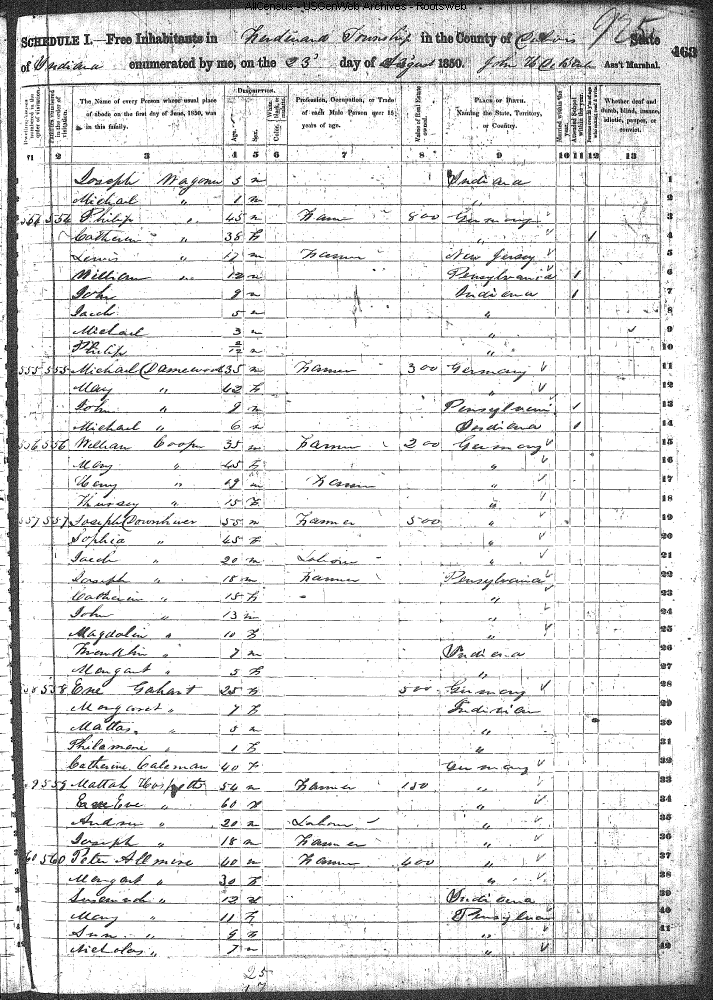 AllCensus - USGenWeb Archives - Rootsweb
SCHEDULE I.—Free Inhabitants in Ferdinand Township in the County of State
of Indiana enumerated by me, on the 23 day of August 1850. John Ass't Marshal.
463
DESCRIPTION.
The Name of every Person whose usual place of abode on the first day of June, 1850, was in this family.
Age.
Sex.
Profession, Occupation, or Trade of each Male Person over 15 years of age.
Value of Real Estate owned.
PLACE OF BIRTH. Naming the State, Territory, or Country.
Married within the year.
Attended School within the year.
Whether deaf and dumb, blind, insane, idiotic, pauper, or convict.
1 2 3 4 5 6 7 8 9 10 11 12 13
Joseph Wagoner 3 m Indiana 1
Michael " 1 m " 2
554 Philip " 45 m Farmer 800 Germany 3
Catherin " 38 f " 4
Lewis " 17 m Farmer New Jersey 5
William " 12 m Pensylvania 1 6
John 9 m Indiana 1 7
Jacob 5 m " 8
Michael 3 m " 9
Philip 2/12 m " 10
555 555 Michael 35 m Farmer 300 Germany 11
Mary " 42 f " 12
John " 9 m Pensylvania 1 13
Michael " 6 m Indiana 1 14
556 556 William Coop 35 m Farmer 200 Germany 15
Mary " 45 f " 16
Henry " 19 m Farmer " 17
" 15 f " 18
557 557 Joseph 55 m Farmer 500 " 19
Sophia " 45 f " 20
Jacob " 20 m Labour " 21
Joseph " 18 m Farmer Pensylvania 22
Catherin " 15 f " 23
John " 13 m " 24
Magdalin " 10 f " 25
Franklin " 7 m Indiana 26
Margaret " 5 f " 27
558 Eve Gahart 25 f 500 Germany 28
Margaret " 7 f Indiana 29
Mattas " 5 m " 30
Philamene " 1 f " 31
Catherine Caleman 40 f Germany 32
559 Mattah 54 m Farmer 150 " 33
Eve " 60 f " 34
Andrew " 20 m Labour " 35
Joseph " 18 m Farmer " 36
560 Peter Allmire 40 m Farmer 400 " 37
Margaret " 30 f " 38
Susannah " 12 f Indiana 39
Mary " 11 f Pensylvan 40
" 9 f " 41
Nicholas " 7 m " 42
25
17